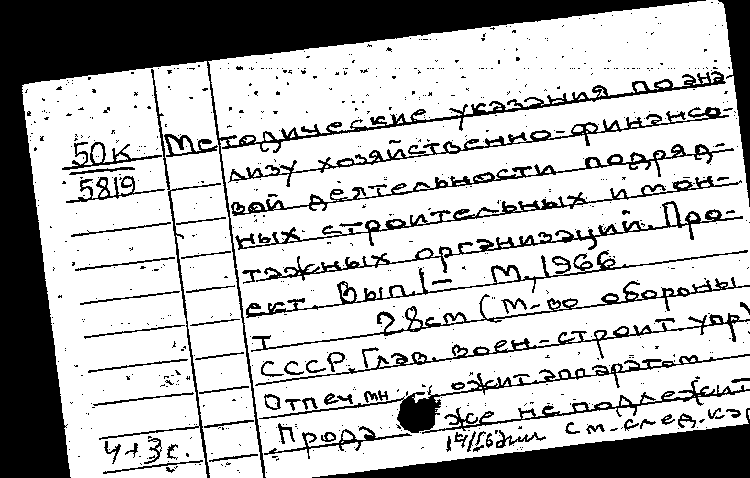 50к
5819
Методические указания по ана-
лизу хозяйственно-финансо-
вой деятельности подряд-
ных строительных и мон-
тажных организаций. Про-
ект. Вып. 1- М., 1966.
т 28см (М-во обороны
СССР. Глав. воен.-строит. упр)
Отпеч. мн ожит. аппаратом.
Прода же не подлежит
4+3с. см. след. кар